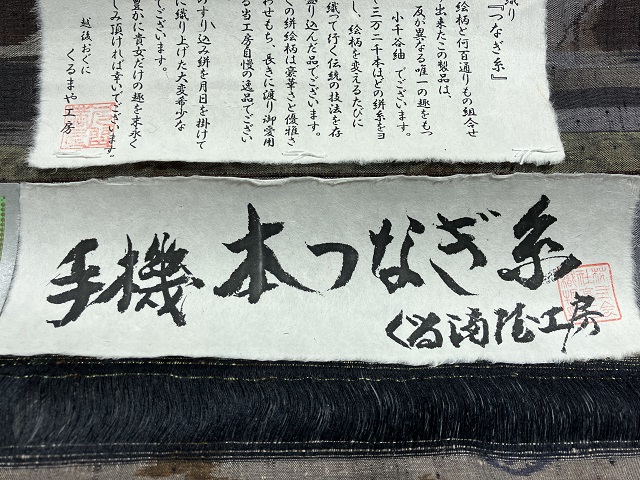 織り
『つなぎ糸』
絵柄と何百通りもの組合せ
出来たこの製品は、
反が異なる唯一の趣をもつ
小千谷紬 でございます。
二万二千本ほどの絣糸をヨ
し、絵柄を変えるたびに
織って行く伝統の技法を存
盛り込んだ品でございます。
くの絣絵柄は豪華さと優雅さ
わせもち、長きに渡り御愛用
る当工房自慢の逸品でござい
のすり込み絣を月日を掛けて
に織り上げた大変希少な
豊かに貴女だけの趣を末永く
しみ頂ければ幸いでございます。
越後おぐに
くるまや工房
手機 本つなぎ糸
工房